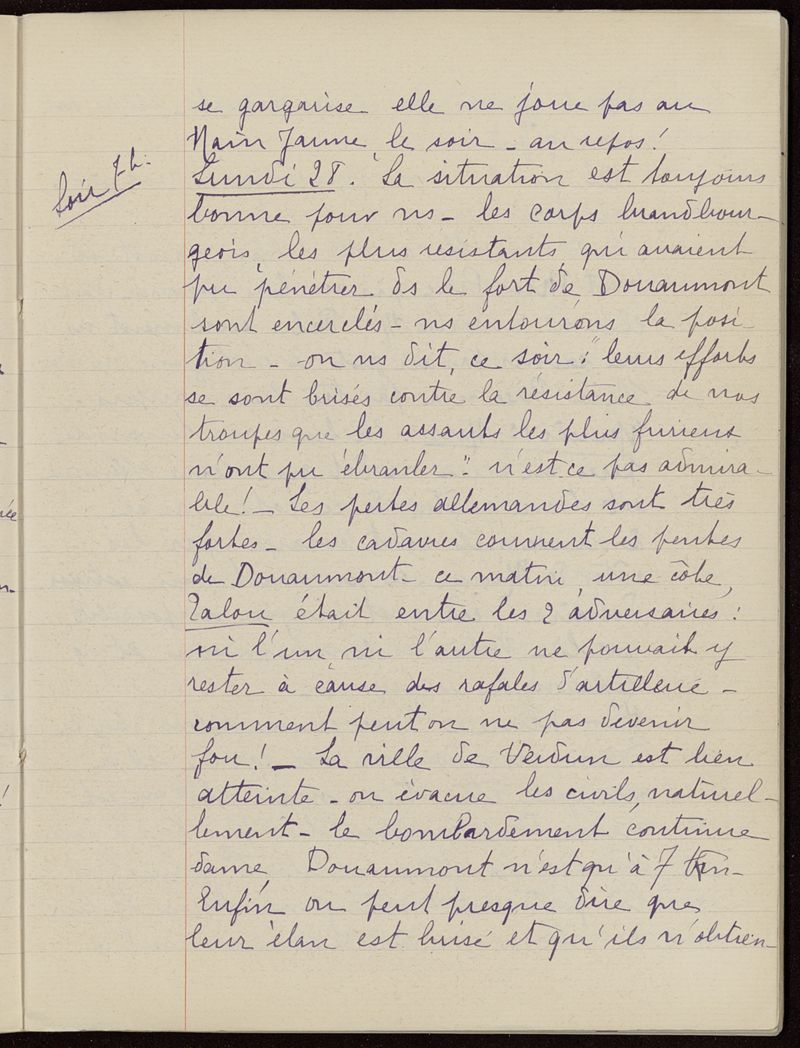 se gargarise elle ne joue pas au
Nain Jaune le soir - au repos!
Soir 7h.
Lundi 28. La situation est toujours
bonne pour ns - les corps brandbour-
geois, les plus résistants, qui avaient
pu pénétrer ds le fort de Douaumont
sont encerclés - ns entourons la posi-
tion - on ns dit, ce soir: "leurs efforts
se sont brisés contre la résistance de nos
troupes que les assauts les plus furieux
n'ont pu ébranler". n'est ce pas admira-
ble! - Les pertes allemandes sont très
fortes - les cadavres couvrent les pentes
de Douaumont - ce matin, une côte,
Talou était entre les 2 adversaires:
ni l'un, ni l'autre ne pouvait y
rester à cause des rafales d'artillerie -
comment peut on ne pas devenir
fou! - La ville de Verdun est bien
atteinte - on évacue les civils, naturel-
lement - le bombardement continue
dame, Douaumont n'est qu'à 7 km -
Enfin on peut presque dire que
leur élan est brisé et qu'ils n'obtien-